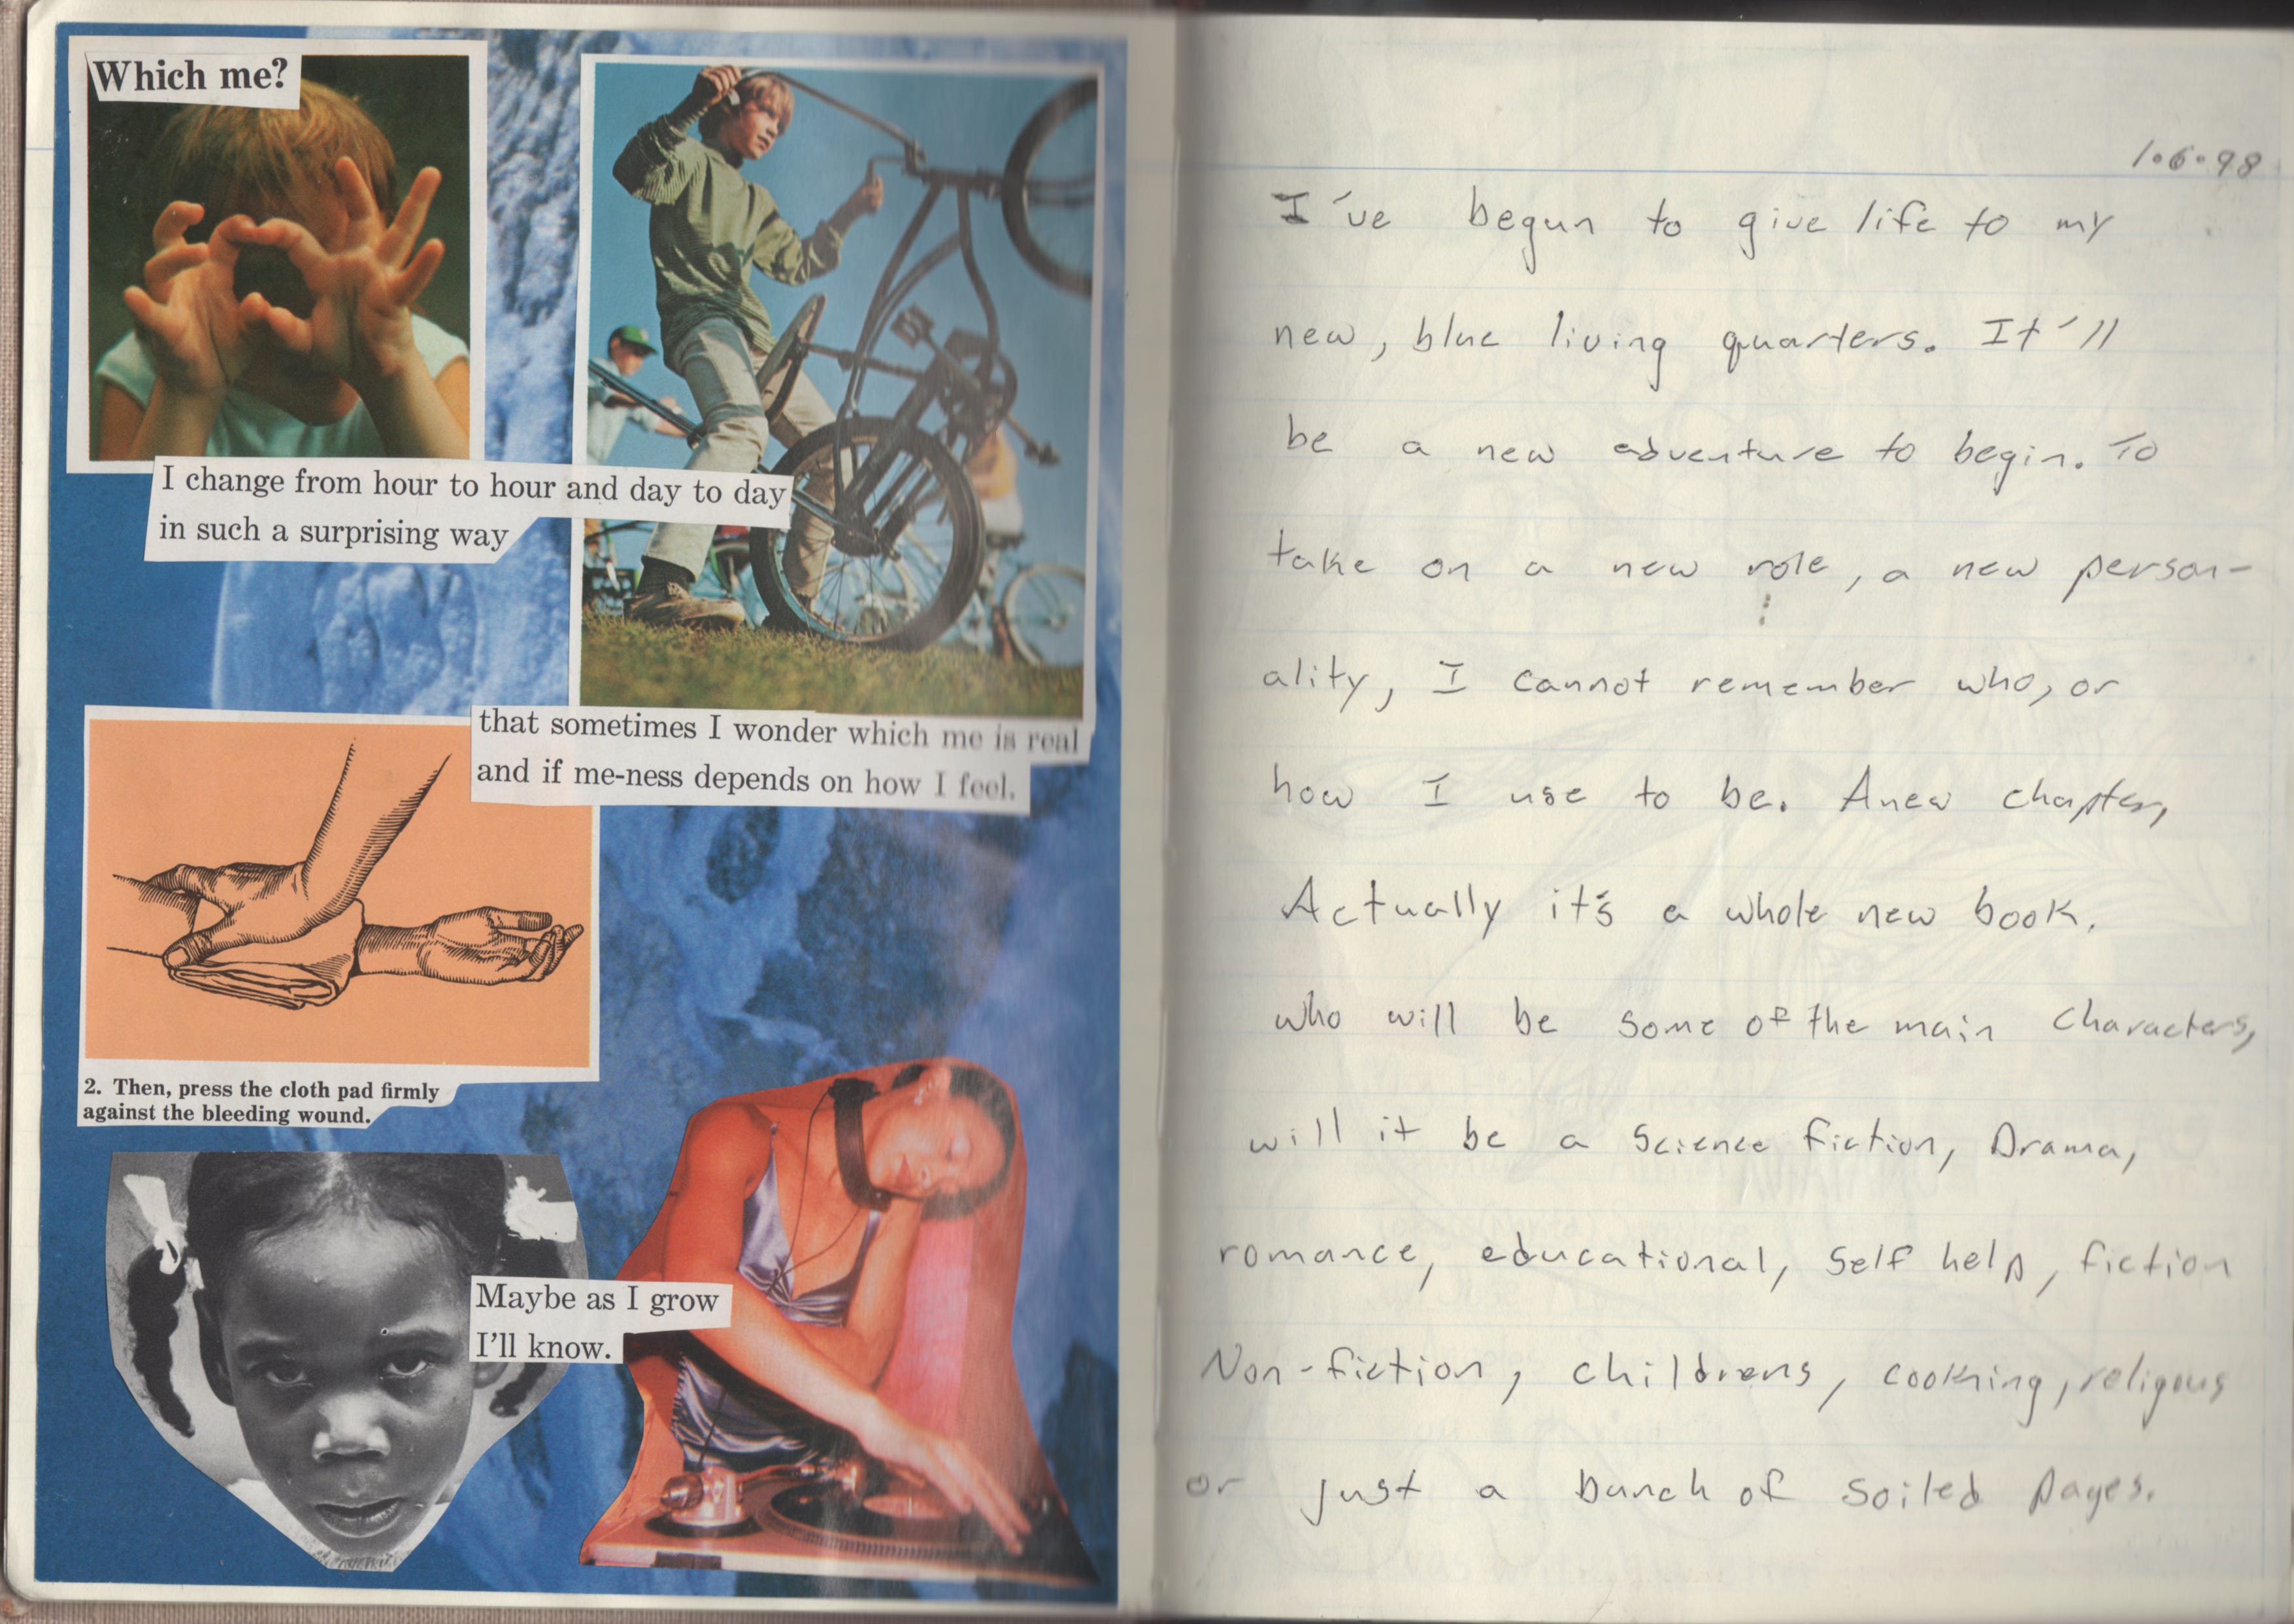 Which me?
I change from hour to hour and day to day
in such a surprising way
that sometimes I wonder which me is real
and if me-ness depends on how I feel.
2. Then, press the cloth pad firmly
against the bleeding wound.
Maybe as I grow
I'll know.
1.6.98
I've begun to give life to my
new, blue living quarters. It'll
be a new adventure to begin. To
take on a new role, a new person-
ality, I cannot remember who, or
how I use to be. A new chapter,
Actually it's a whole new book.
who will be some of the main characters,
will it be a Science fiction, Drama,
romance, educational, Self help, fiction
Non-fiction, childrens, cooking, religous
or just a bunch of soiled pages.